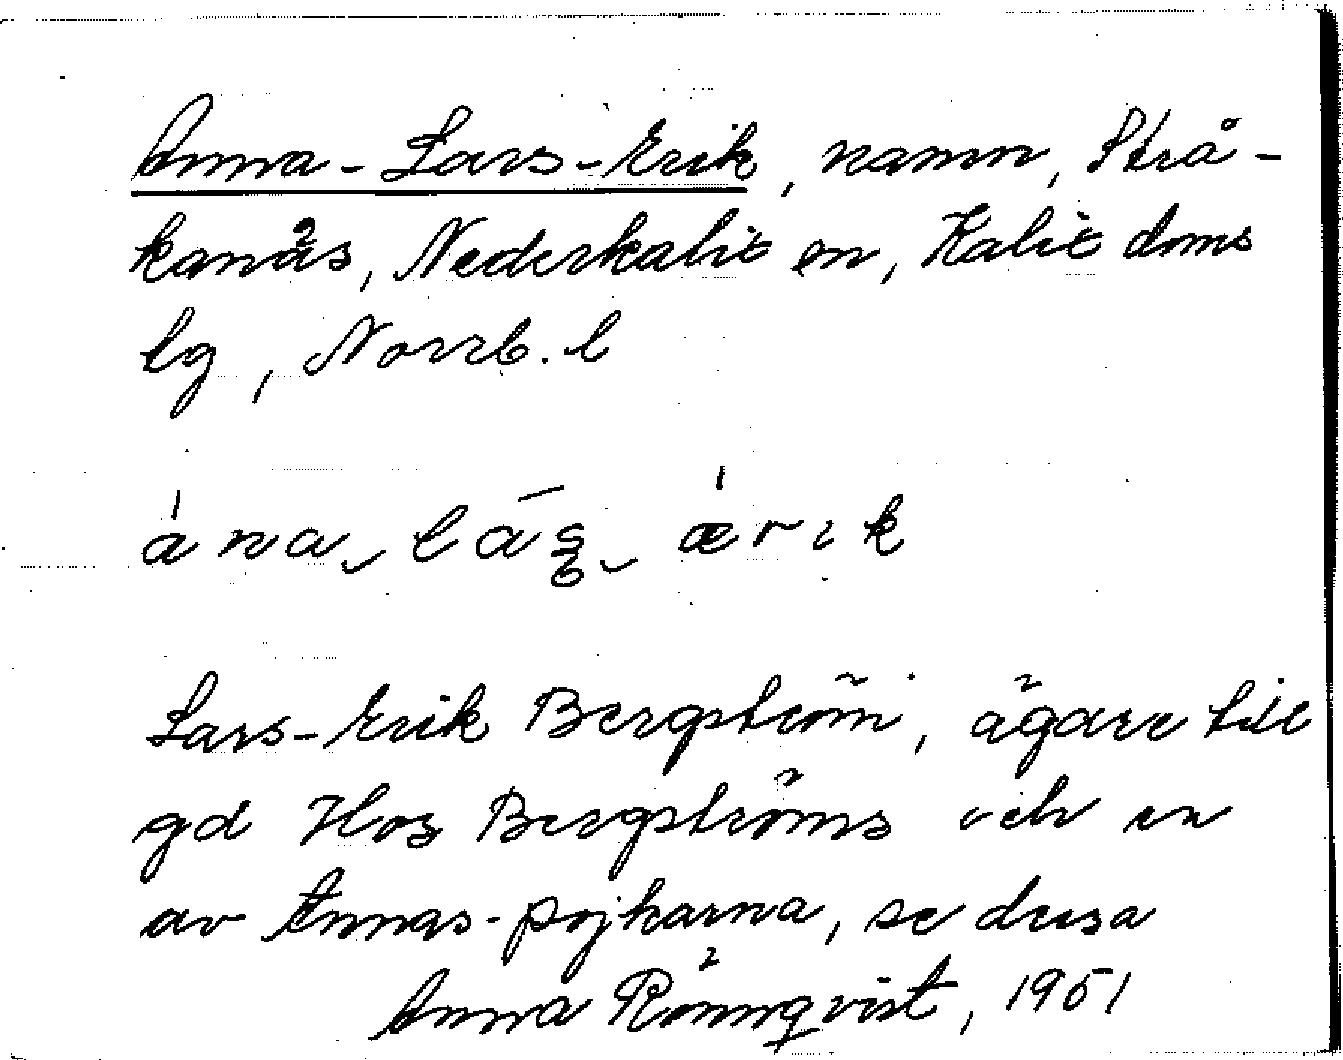 Anna-Lars-Erik, namn, Strå-
kanäs, Nederkalix sn, Kalix doms
lg, Norrb. l
Lars-Erik Bergström, ägare till
gd Hos Bergströms och en
av Annas-pojkarna, se dessa
Anna Rönnqvist, 1951